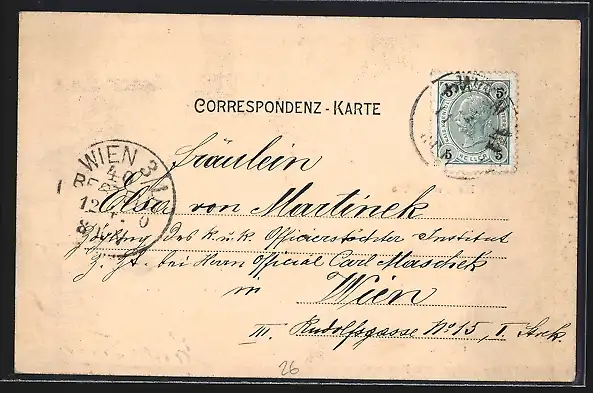 CORRESPONDENZ-KARTE
5 5
5 HELLER 5
WIEN 3/1
Fräulein
Elsa von Martinek
Zögling des k. u. k. Officierstöchter Institut
z. Zt. bei Herrn Official Carl Maschek
in Wien
III. Rudolfsgasse No 15, I. Stock.
26